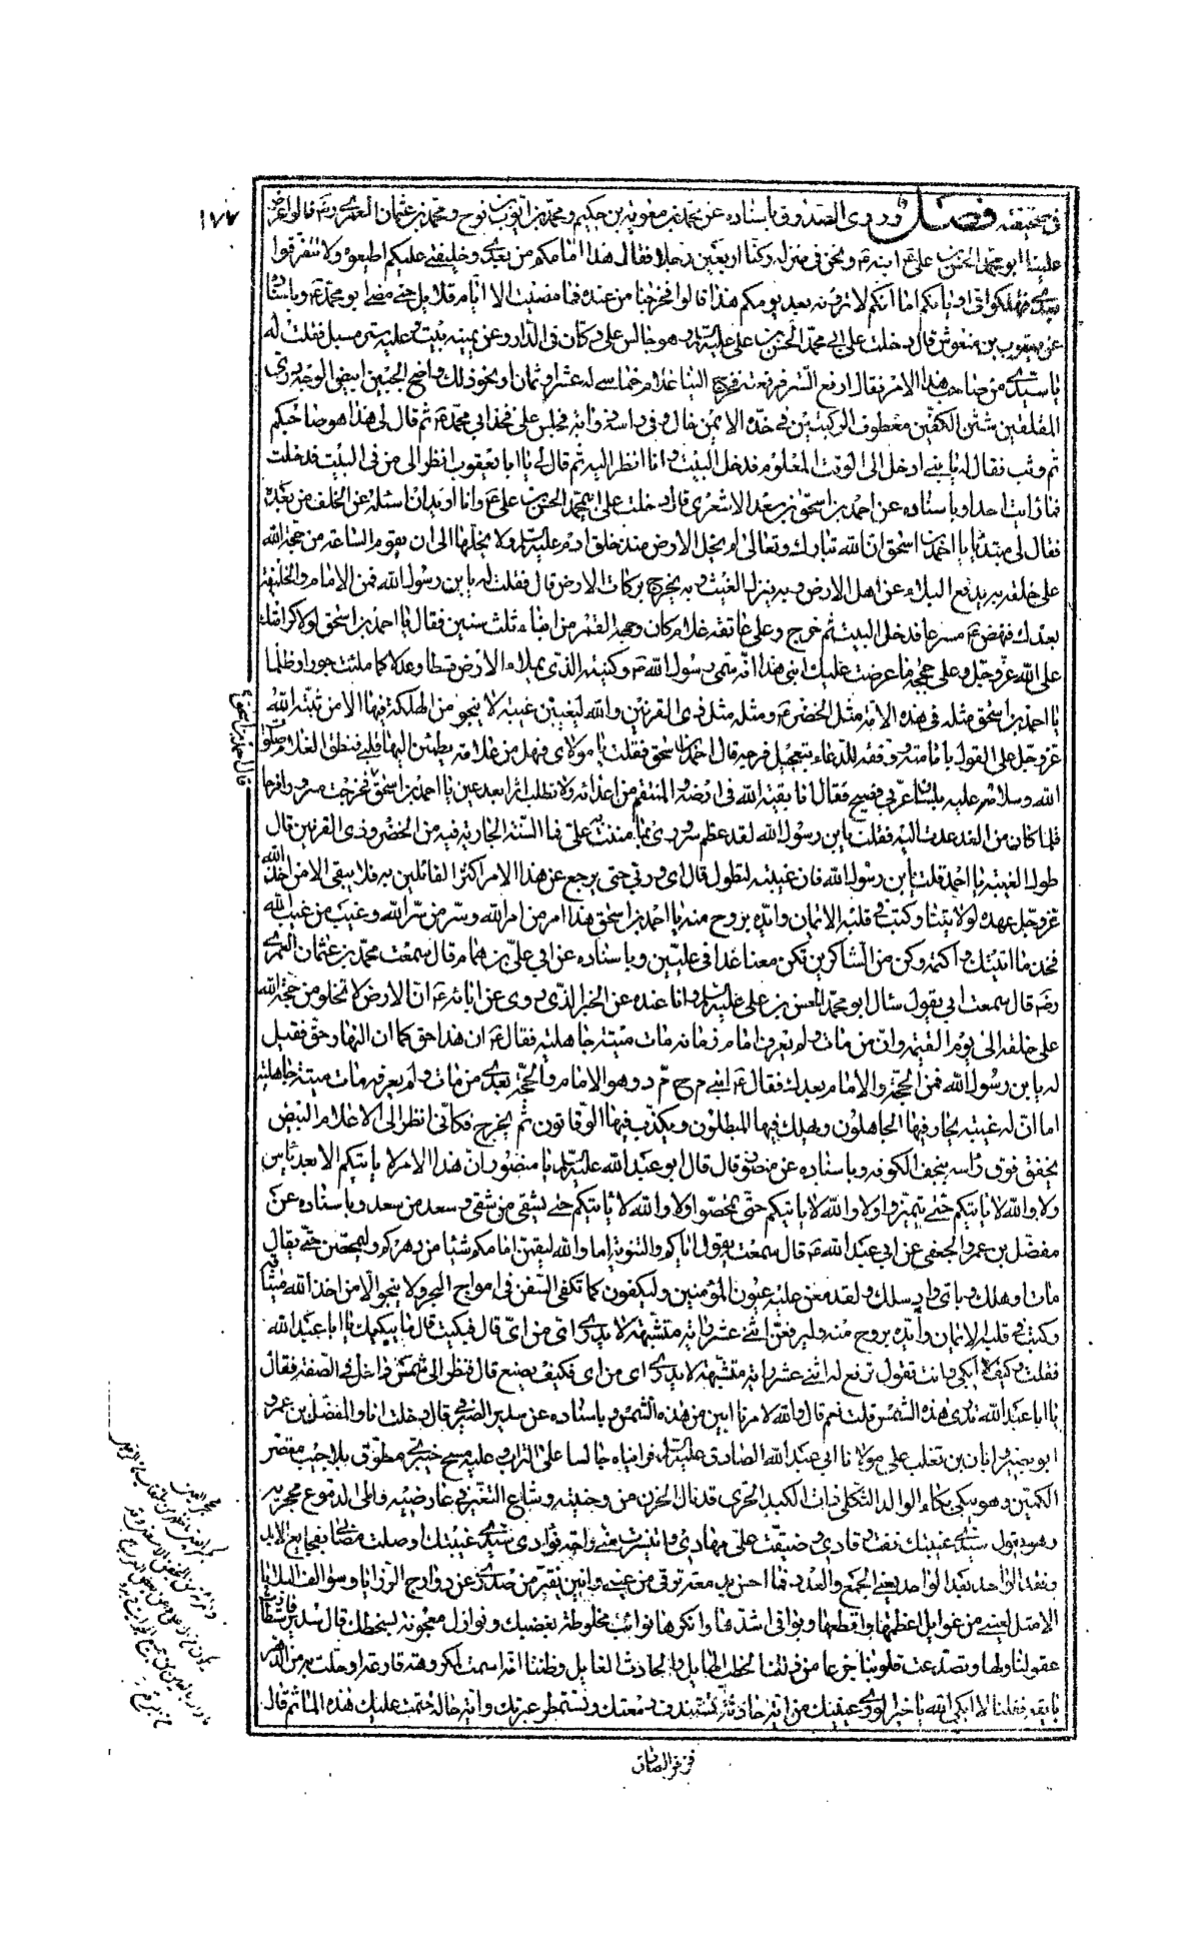 ١٧٧
في حقيقته فصل وروى الصدوق باسناده عن محمد بن معوية بن حكيم ومحمد بن ايوب بن نوح ومحمد بن عثمان العمري رضه قالوا عرض
علينا ابو محمد الحسن بن علي ع ابنه ع ونحن في منزله وكنا اربعين رجلا فقال هذا امامكم من بعدي وخليفتي عليكم اطيعوه ولا تتفرقوا
بعدي فتهلكوا في اديانكم اما انكم لا ترونه بعد يومكم هذا قالوا فخرجنا من عنده فما مضيت الا ايام قلايل حتى مضى ابو محمد ع وباسناده
عن يعقوب بن منفوش قال دخلت على ابي محمد الحسن بن علي عليه السلم وهو جالس على دكان في الدار وعن يمينه بيت وعليه ستر مسبل فقلت له
يا سيدي من صاحب هذا الامر فقال ارفع الستر فرفعته فخرج الينا غلام خماسي له عشر او ثمان او نحو ذلك واضح الجبين ابيض الوجه دري
المقلتين شثن الكفين معطوف الركبتين في خده الايمن خال وفي راسه ذوابة فجلس على فخذ ابي محمد ع ثم قال لي هذا هو صاحبكم
ثم وثب فقال له يا بني ادخل الى الوقت المعلوم فدخل البيت وانا انظر اليه ثم قال لي يا يعقوب انظر الى من في البيت فدخلت
فما رايت احدا وباسناده عن احمد بن اسحق بن سعد الاشعري قال دخلت على ابي محمد الحسن بن علي ع وانا اريد ان اسئله عن الخلف من بعده
فقال لي مبتدئا يا احمد بن اسحق ان الله تبارك وتعالى لم يخل الارض منذ خلق ادم عليه السلم ولا يخليها الى ان يقوم الساعة من حجة الله
على خلقه به يدفع البلاء عن اهل الارض وبه ينزل الغيث وبه يخرج بركات الارض قال فقلت له يا بن رسول الله فمن الامام والخليفة
بعدك فنهض ع مسرعا فدخل البيت ثم خرج وعلى عاتقه غلام كان وجهه القمر من ابناء ثلث سنين فقال يا احمد بن اسحق لولا كرامتك
على الله عز وجل وعلى حججه ما عرضت عليك ابني هذا انه سمي رسول الله ص وكنيه الذي يملاء الارض قسطا وعدلا كما ملئت جورا وظلما
يا احمد بن اسحق مثله في هذه الامة مثل الخضر ع ومثله مثل ذي القرنين والله ليغيبن غيبة لا ينجو من الهلكة فيها الا من ثبته الله
عز وجل على القول بامامته ووفقه للدعاء بتعجيل فرجه قال احمد بن اسحق فقلت يا مولاي فهل من علامة يطمئن اليها قلبي فنطق الغلام صلوات
الله وسلامه عليه بلسان عربي فصيح فقال انا بقية الله في ارضه والمنتقم من اعدائه ولا تطلب اثرا بعد عين يا احمد بن اسحق فخرجت مسرورا فرحا
فلما كان من الغد عدت اليه فقلت يا بن رسول الله لقد عظم سروري بما مننت به علي فما السنة الجارية فيه من الخضر وذي القرنين قال
طول الغيبة يا احمد قلت يا بن رسول الله فان غيبته لتطول قال اي وربي حتى يرجع عن هذا الامر اكثر القائلين به فلا يبقى الا من اخذ الله
عز وجل عهده لولايتنا وكتب في قلبه الايمان وايده بروح منه يا احمد بن اسحق هذا امر من امر الله وسر من سر الله وغيب من غيب الله
فخذ ما اتيتك واكتمه وكن من الشاكرين تكن معنا غدا في عليين وباسناده عن ابي علي بن همام قال سمعت محمد بن عثمان العمري
رضه قال سمعت ابي يقول سئل ابو محمد الحسن بن علي عليه السلم وانا عنده عن الخبر الذي روى عن ابائه ع ان الارض لا تخلو من حجة الله
على خلقه الى يوم القيمة وان من مات ولم يعرف امام زمانه مات ميتة جاهلية فقال ع ان هذا حق كما ان النهار حق فقيل
له يا بن رسول الله فمن الحجة والامام بعدك فقال ع ابني م ح م د وهو الامام والحجة بعدي من مات ولم يعرفه مات ميتة جاهلية
اما ان له غيبة يحار فيها الجاهلون ويهلك فيها المبطلون ويكذب فيها الوقاتون ثم يخرج فكاني انظر الى الاعلام البيض
يخفق فوق راسه بنجف الكوفه وباسناده عن منصور قال قال ابو عبد الله عليه السلم يا منصور ان هذا الامر لا ياتيكم الا بعد ياس
ولا والله لا ياتيكم حتى يتميزوا ولا والله لا ياتيكم حتى يمحصوا ولا والله لا ياتيكم حتى يشقى من شقي وسعد من سعد وباسناده عن
مفضل بن عمرو الجعفي عن ابي عبد الله ع قال سمعت يقول اياكم والتنويه اما والله ليغيبن امامكم شيئا من دهركم وليمحصن حتى يقال
مات او هلك وباي واد سلك ولقد معن عليه عيون المؤمنين وليكفون كما تكفى السفن في امواج البحر ولا ينجو الا من اخذ الله ميثاقه
وكتب في قلبه الايمان وايده بروح منه وليرفعن اثنى عشر راية متشبهة لا يدري اي من اي قال فبكيت قال ما يبكيك يا ابا عبد الله
فقلت وكيف لا ابكي وانت تقول ترفع له اثنى عشر راية متشبهة لا يدري اي من اي فكيف يصنع قال فنظر الى شمس داخل في الصفة فقال
يا ابا عبد الله ترى هذه الشمس قلت نعم قال والله لامرنا ابين من هذه الشمس وباسناده عن سدير الصيرفي قال دخلت انا والمفضل بن عمر و
ابو بصير وابان بن تغلب على مولانا ابي عبد الله الصادق عليه السلم فرايناه جالسا على التراب وعليه مسح خيبري مطوق بلا جيب مقصر
الكمين وهو يبكي بكاء الوالد الثكلى ذات الكبد الحرى قد نال الحزن من وجنتيه وشاع التغير في عارضيه وابلى الدموع محجريه
وهو يقول سيدي غيبتك نفت رقادي وضيقت على مهادي وابتزت مني راحة فؤادي سيدي غيبتك اوصلت مصابي بفجايع الابد
وفقد الواحد بعد الواحد يفني الجمع والعدد فما احس بدمعة ترقى من عيني وانين يفتر من صدري عن دوارج الرزايا وسوالف البلايا
الا مثل لعيني من عوابل اعظمها وافظعها وبواقي اشدها وانكرها نوائب مخلوطة بغضبك ونوازل معجونة بسخطك قال سدير فاستطارت
عقولنا ولها وتصدعت قلوبنا جزعا من ذلك الخطب الهايل والحادث الغايل وظننا انه اسمت لمكروهة قارعة او حلت به من الدهر
بايقه فقلنا لا ابكى الله يا خير الورى عينيك من اية حادثة تستنزف دمعتك وتستمطر عبرتك واية حالة حتمت عليك هذه الماتم قال
فزفر الصادق
قال احمد بن اسحق